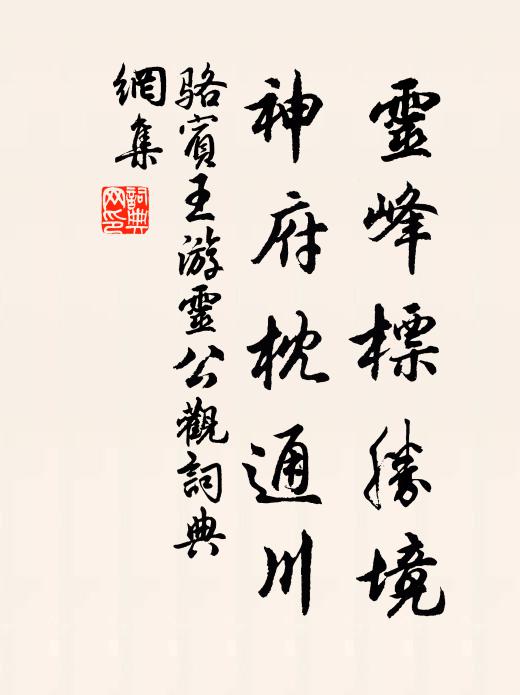 靈峰標勝境
神府枕通川
駱賓王游靈公觀詞典
網集
詞典
网印